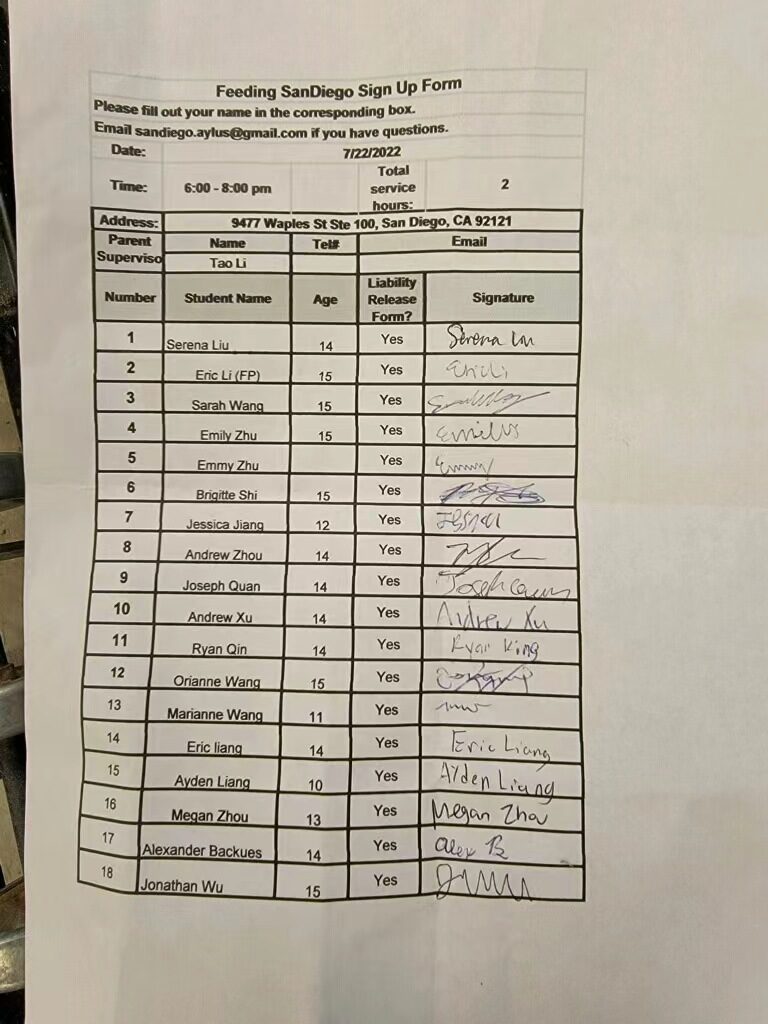 Feeding SanDiego Sign Up Form
Please fill out your name in the corresponding box.
Email sandiego.aylus@gmail.com if you have questions.
Date: 7/22/2022
Time: 6:00 - 8:00 pm Total service hours: 2
Address: 9477 Waples St Ste 100, San Diego, CA 92121
Parent Superviso Name Tel# Email
Tao Li
Number Student Name Age Liability Release Form? Signature
1 Serena Liu 14 Yes Serena Liu
2 Eric Li (FP) 15 Yes Eric Li
3 Sarah Wang 15 Yes
4 Emily Zhu 15 Yes
5 Emmy Zhu Yes Emmy
6 Brigitte Shi 15 Yes
7 Jessica Jiang 12 Yes
8 Andrew Zhou 14 Yes
9 Joseph Quan 14 Yes Joseph
10 Andrew Xu 14 Yes Andrew Xu
11 Ryan Qin 14 Yes Ryan
12 Orianne Wang 15 Yes
13 Marianne Wang 11 Yes
14 Eric liang 14 Yes Eric Liang
15 Ayden Liang 10 Yes Ayden Liang
16 Megan Zhou 13 Yes Megan Zhou
17 Alexander Backues 14 Yes Alex B
18 Jonathan Wu 15 Yes